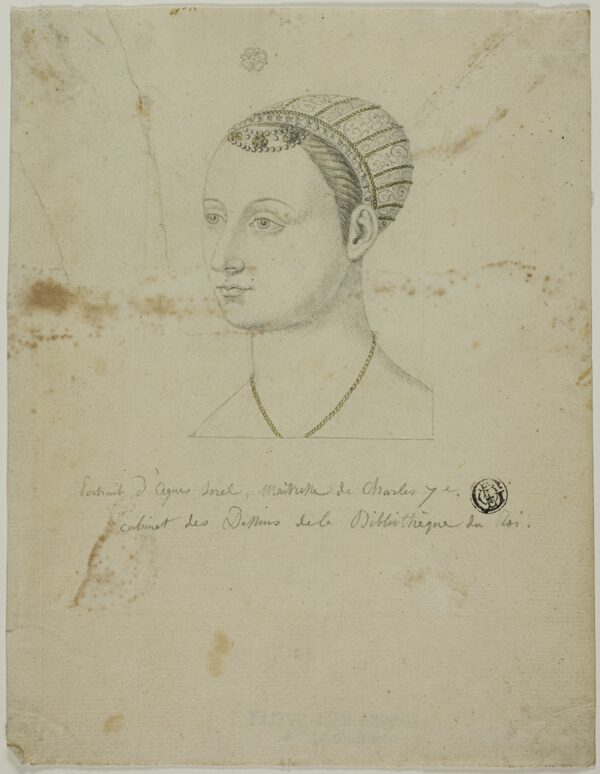 Portrait d'agnes Sorel, Maitresse de Charles 7e.
cabinet des Dessins de la Bibliothèque du Roi.